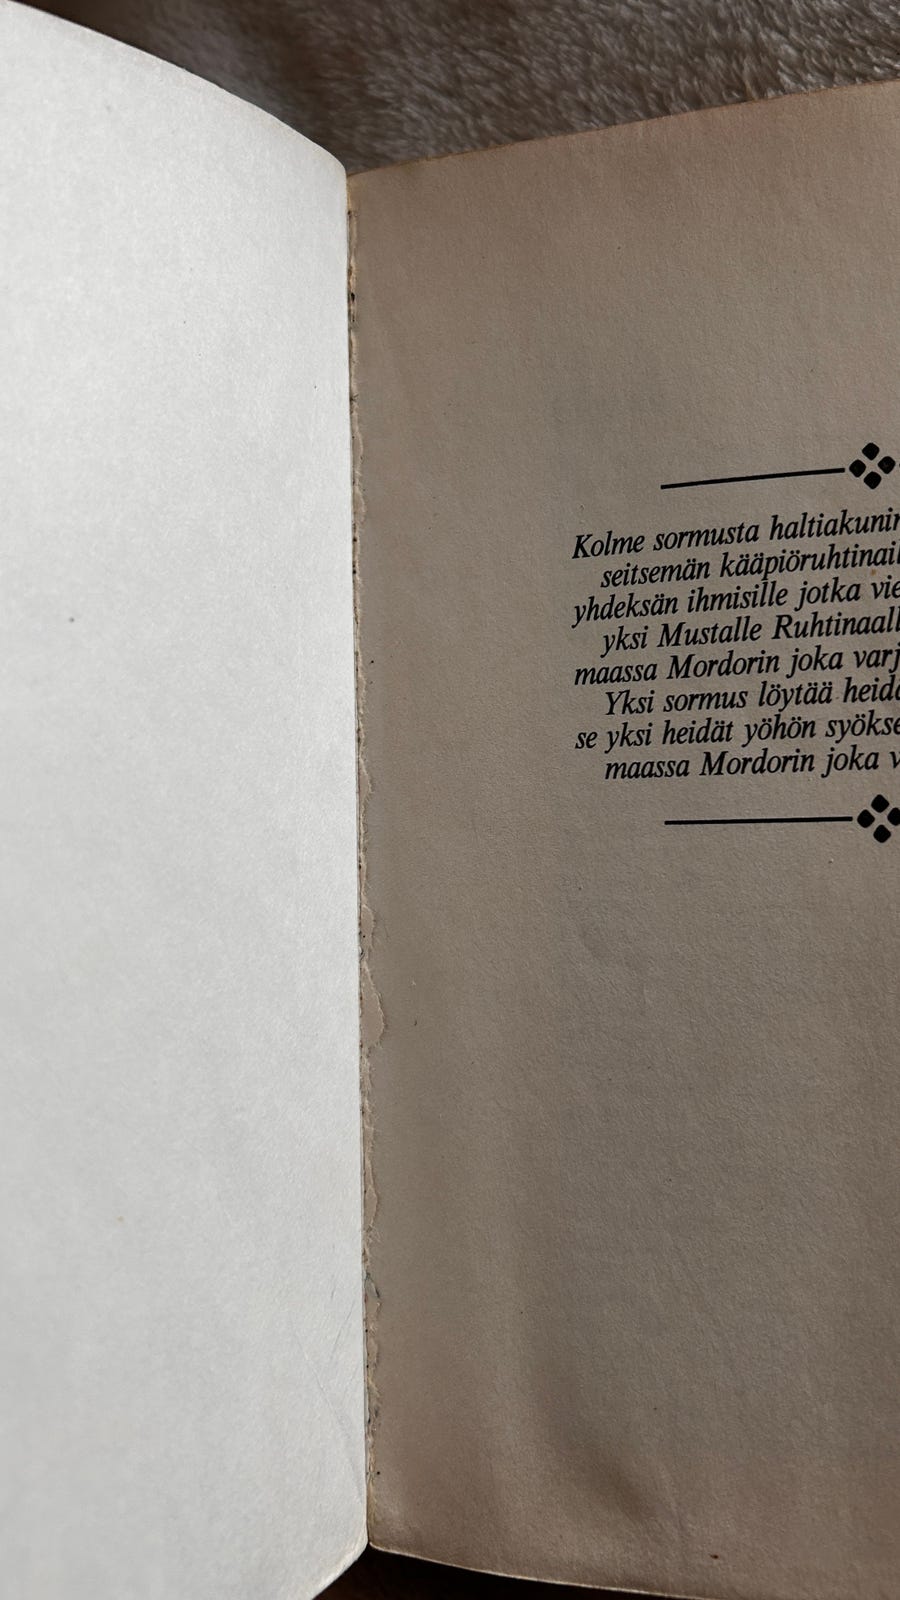 Kolme sormusta haltiakunin
seitsemän kääpiöruhtinail
yhdeksän ihmisille jotka vie
yksi Mustalle Ruhtinaall
maassa Mordorin joka varj
Yksi sormus löytää heidä
se yksi heidät yöhön syökse
maassa Mordorin joka v